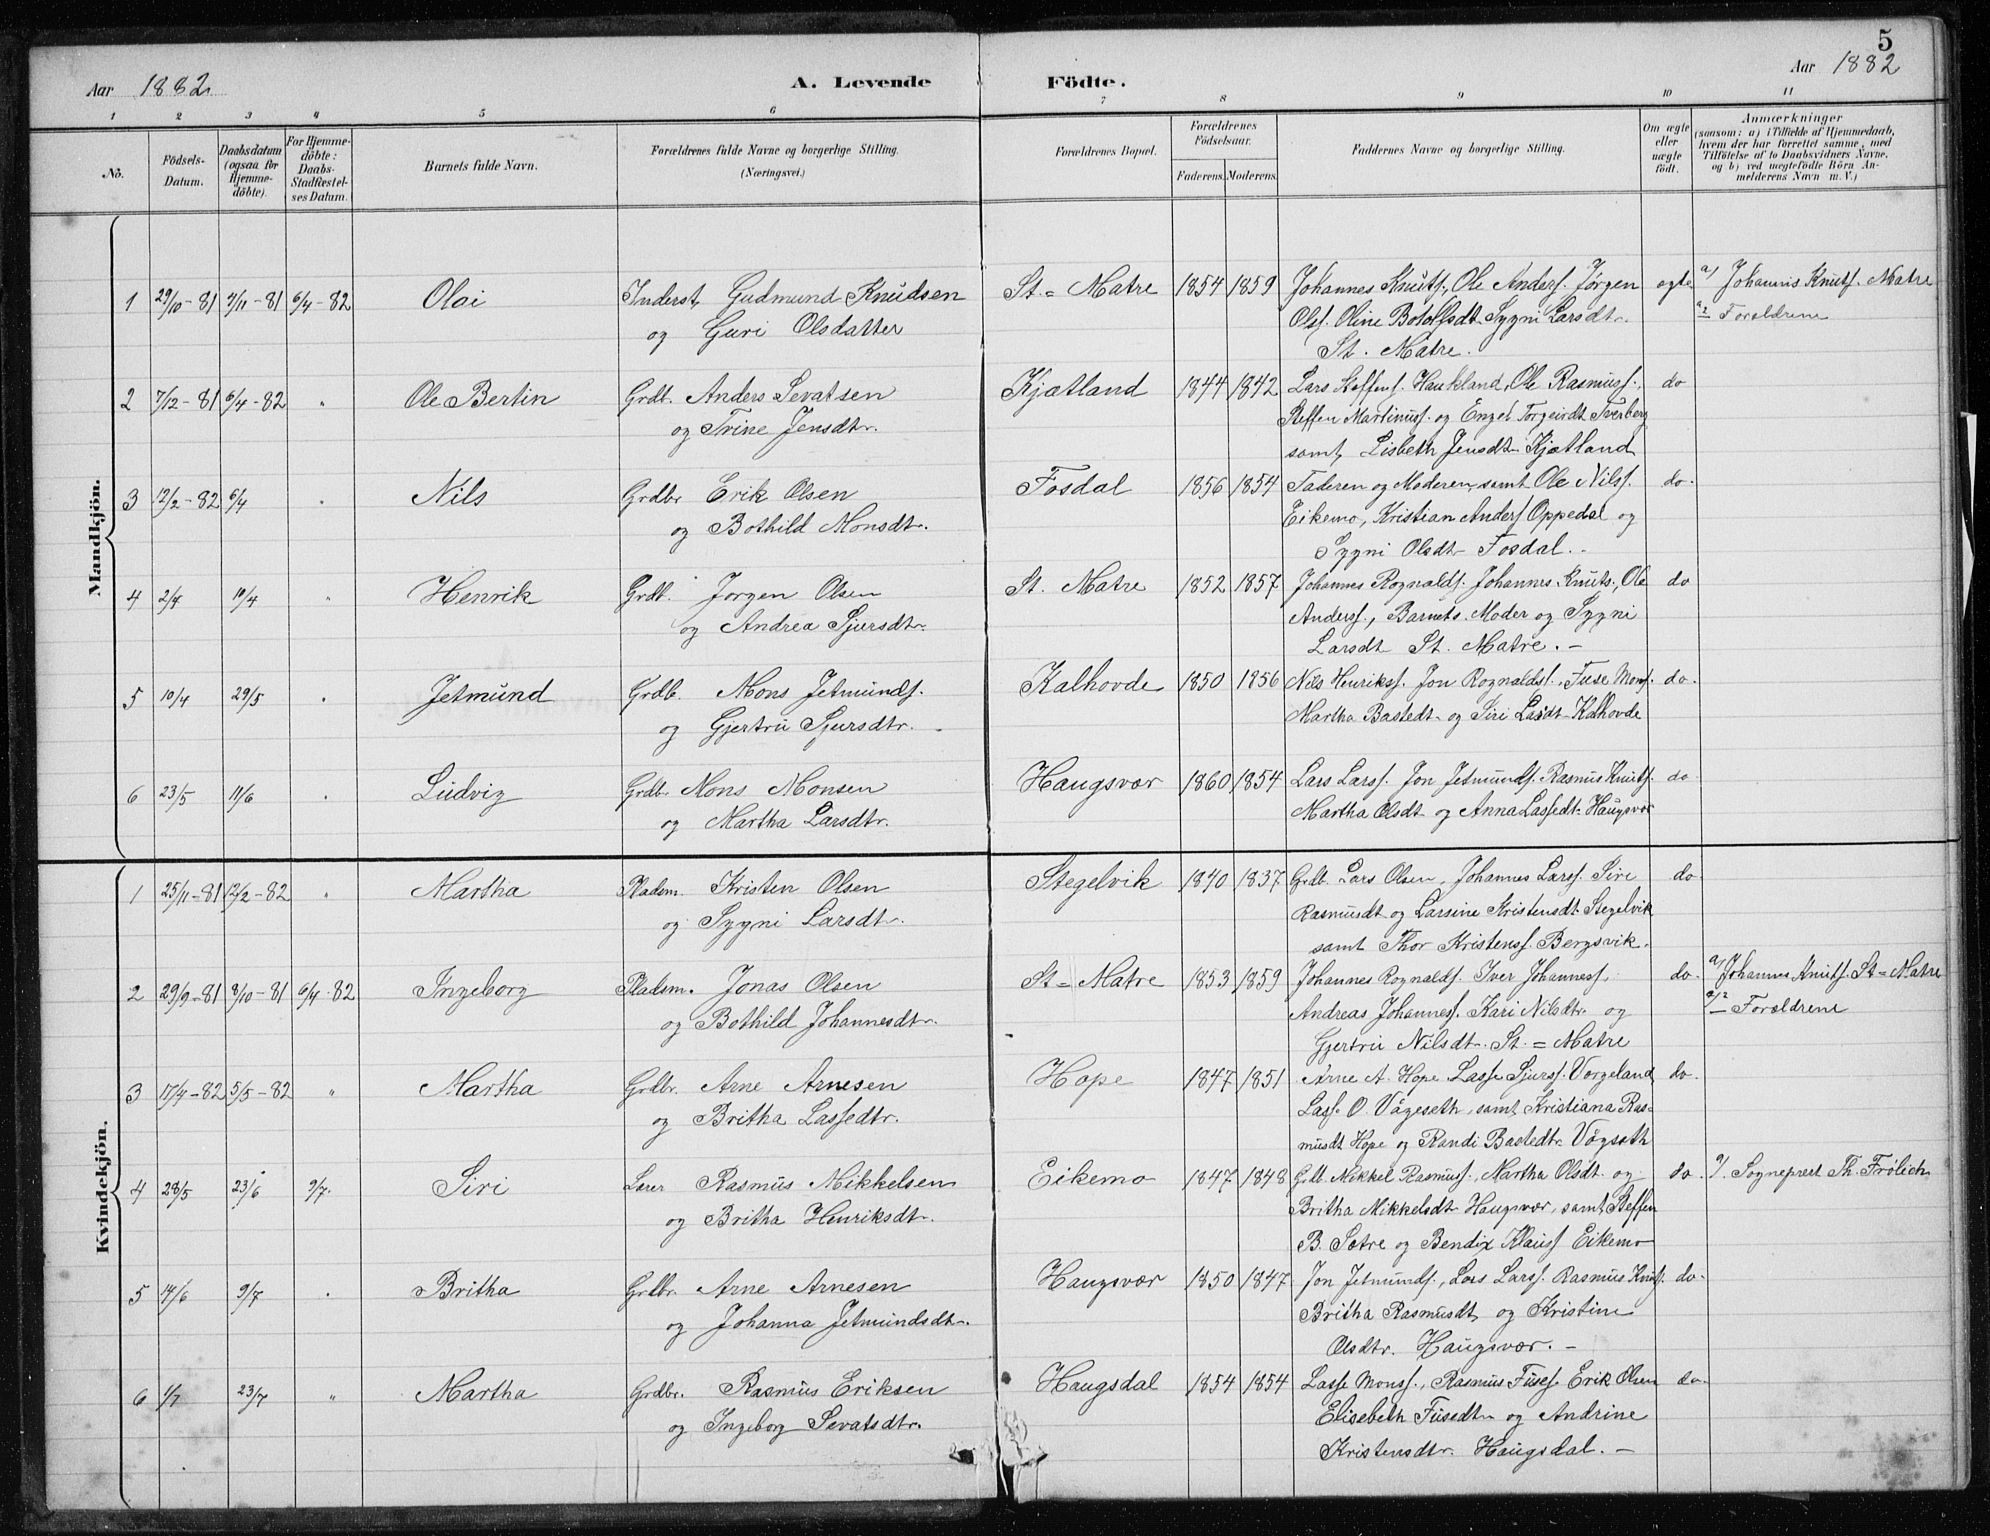 5
Aar 1882. A. Levende Födte. Aar 1882
1 2 3 4 5 6 7 8 9 10 11
No. Födsels-Datum. Daabsdatum (ogsaa för Hjemmedöbte). For Hjemmedöbte: Daabs-Stadfæstelses Datum. Barnets fulde Navn. Forældrenes fulde Navne og borgerlige Stilling. (Næringsvei.) Forældrenes Bopæl. Forældrenes Födselsaar. Faderens. Moderens. Faddernes Navne og borgerlige Stilling. Om ægte eller uægte födt. Anmærkninger (saasom: a) i Tilfælde af Hjemmedaab, hvem der har forrettet samme, med Tilföielse af to Daabsvidners Navne, og b) ved uægtefödte Börn Anmelderens Navn m. V.)
Mandkjön.
1 29/10-81 7/11-81 6/4-82 Olai Inderst Gudmund Knudsen St = Matre 1854 1859 Johannes Knuts., Ole Anders. Jørgen ægte a) Johannis Knuts. Matre
og Guri Olsdatter Ols. Oline Botolfsdt. Sygni Larsdt. a2 Forældrene
St. Matre.
2 7/12-81 6/4-82 " Ole Bertin Grdb. Anders Sevatsen Kjætland 1844 1842 Lars Steffens. Haukland, Ole Rasmuss. do
og Trine Jensdtr. Steffen Martinuss. og Engel Torgeirdt Tverberg
samt Lisbeth Jensdt. Kjætland
3 12/2-82 6/4 " Nils Grdbr Erik Olsen Fosdal 1856 1854 Faderen og Moderen, samt Ole Nilss. do.
og Bothild Monsdt. Eikemo, Kristian Anders. Oppedal og
Sygni Olsdt Fosdal.
4 2/4 10/4 " Henrik Grdb. Jorgen Olsen St. Matre 1852 1857 Johannes Rognalds. Johannes Knuts., Ole do
og Andrea Sjursdtr. Anderss., Barnets Moder og Sygni
Larsdt St. Matre. -
5 10/4 29/5 " Jetmund Grdb. Mons Jetmunds. Kalhovde 1850 1856 Nils Henrikss. Jon Rognaldss., Fuse Mons. do.
og Gjertru Sjursdtr. Martha Bastedt. og Siri Lasdt Kalhovde
6 23/5 11/6 " Ludvig Grdb. Mons Monsen Haugsvær 1860 1854 Lars Larss. Jon Jetmunds. Rasmus Knuts. do
og Martha Larsdtr. Martha Olsdt og Anna Lassedt. Haugsvær
Kvindekjön.
1 25/11-81 12/2-82 " Martha Pladsm. Kristen Olsen Stegelvik 1840 1837 Grdb. Lars Olsen, Johannes Larss. Siri do
og Sygni Larsdtr. Rasmusdt og Larsine Kristensdt. Stegelvik
samt Thor Kristenss. Bergsvik.
2 29/9-81 8/10-81 6/4-82 Ingeborg Pladsm. Jonas Olsen St = Matre 1853 1859 Johannes Rognalds. Iver Johanness. do. a) Johannes Knuts. St = Matre
og Bothild Johannesdtr. Andreas Johanness. Kari Nilsdtr. og a/2 Forældrene
Gjertru Nilsdt. St. = Matre
3 17/4-82 5/5-82 " Martha Grdbr. Arne Arnesen Hope 1847 1851 Arne A. Hope Lasse Sjurss. Vorgeland do.
og Britha Lassedtr. Lass. O. Vågeseth, samt Kristiana Ras-
musdt Hope og Randi Bastedtr. Vågseth
4 28/5 23/6 9/7. Siri Lærer Rasmus Mikkelsen Eikemo 1847 1848 Grdb. Mikkel Rasmuss., Martha Olsdt og do. a/. Sogneprest Th. Frölich
og Britha Henriksdt. Britha Mikkelsdt Haugsvær, samt Steffen
B. Sætre og Bendix Klauss. Eikemo
5 14/6 9/7 " Britha Grdbr. Arne Arnesen Haugsvær 1850 1847 Jon Jetmunds., Lars Larss. Rasmus Knuts. do.
og Johanna Jetmundsdt. Britha Rasmusdt og Kristine
Olsdtr. Haugsvær. -
6 1/7 23/7 " Martha Grdbr. Rasmus Eriksen Haugsdal 1854 1854 Lasse Monss., Rasmus Fuses. Erik Olsen do.
og Ingeborg Sevatsdtr. Elisebeth Fusedtr. og Andrine
Kristensdtr. Haugsdal. -